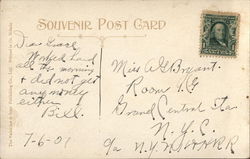 SOUVENIR POST CARD
Dear Grace,
Worked hard
all the morning
& did not get
any money
either
Bill.
7-6-01
Miss A G Bryant.
Room
Grand Central Sta
N. Y. C.
c/o N.Y.